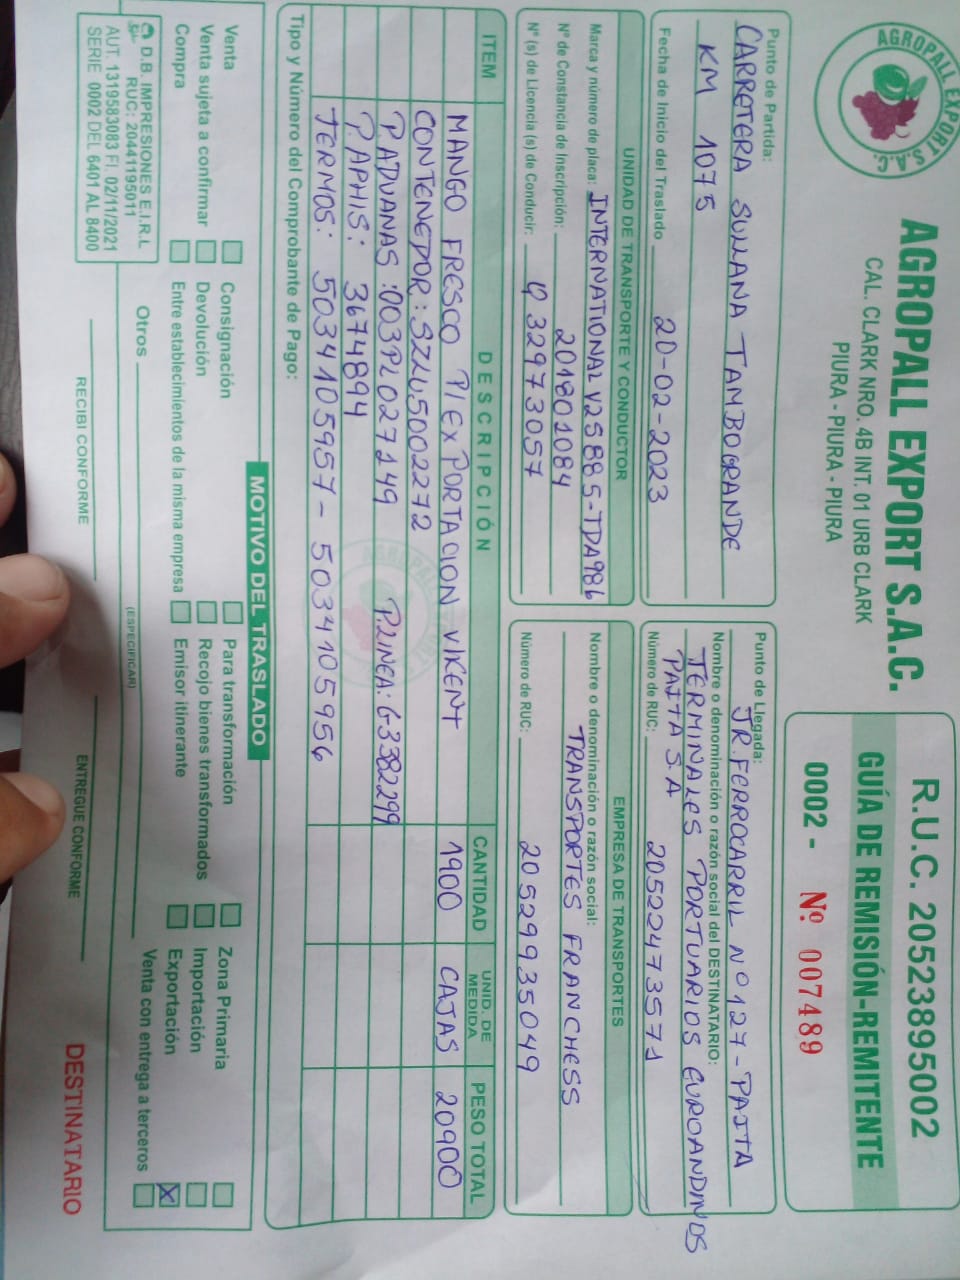 AGROPALL EXPORT S.A.C.
AGROPALL EXPORT S.A.C.
CAL. CLARK NRO. 4B INT. 01 URB CLARK
PIURA - PIURA - PIURA
R.U.C. 20523895002
GUÍA DE REMISIÓN-REMITENTE
0002 - Nº 007489
Punto de Partida:
CARRETERA SULLANA TAMBOGRANDE
KM 1075
Fecha de Inicio del Traslado 20-02-2023
Punto de Llegada:
JR. FERROCARRIL Nº 127 - PAITA
Nombre o denominación o razón social del DESTINATARIO:
TERMINALES PORTUARIOS EUROANDINOS
PAITA S.A
Número de RUC: 20522473571
UNIDAD DE TRANSPORTE Y CONDUCTOR
Marca y número de placa: INTERNATIONAL V2S885-TDA986
Nº de Constancia de Inscripción: 201801084
Nº (s) de Licencia (s) de Conducir: Q32973057
EMPRESA DE TRANSPORTES
Nombre o denominación o razón social:
TRANSPORTES FRANCHESS
Número de RUC: 20529935049
ITEM DESCRIPCIÓN CANTIDAD UNID. DE MEDIDA PESO TOTAL
MANGO FRESCO P/EXPORTACION V/KENT 1900 CAJAS 20900
CONTENEDOR: SZLU5002272
P.ADUANAS: 003PL027149 P.LINEA: G3382299
P.APHIS: 3674894
TERMOS: 5034105957 - 5034105956
Tipo y Número del Comprobante de Pago:
MOTIVO DEL TRASLADO
Venta Consignación Para transformación Zona Primaria
Venta sujeta a confirmar Devolución Recojo bienes transformados Importación
Compra Entre establecimientos de la misma empresa Emisor itinerante Exportación X
Venta con entrega a terceros
Otros
(ESPECIFICAR)
D.B. IMPRESIONES E.I.R.L
RUC: 20441195011
AUT. 1319583083 FI. 02/11/2021
SERIE 0002 DEL 6401 AL 8400
RECIBI CONFORME
ENTREGUE CONFORME
DESTINATARIO